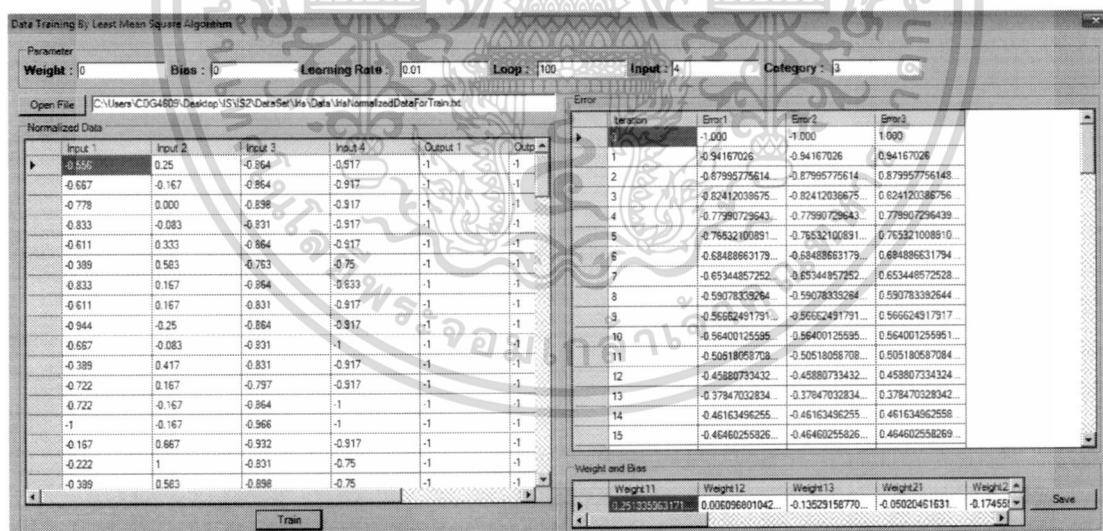 Data Training By Least Mean Square Algorithm
Parameter
Weight : 0 Bias : 0 Learning Rate : 0.01 Loop : 100 Input : 4 Category : 3
Open File C:\Users\CDG4609\Desktop\IS\IS2\DataSet\Iris\Data\IrisNormalizedDataForTrain.txt
Normalized Data
Input 1 Input 2 Input 3 Input 4 Output 1 Outp
-0.556 0.25 -0.864 -0.917 -1 -1
-0.667 -0.167 -0.864 -0.917 -1 -1
-0.778 0.000 -0.898 -0.917 -1 -1
-0.833 -0.083 -0.831 -0.917 -1 -1
-0.611 0.333 -0.864 -0.917 -1 -1
-0.389 0.583 -0.763 -0.75 -1 -1
-0.833 0.167 -0.864 -0.833 -1 -1
-0.611 0.167 -0.831 -0.917 -1 -1
-0.944 -0.25 -0.864 -0.917 -1 -1
-0.667 -0.083 -0.831 -1 -1 -1
-0.389 0.417 -0.831 -0.917 -1 -1
-0.722 0.167 -0.797 -0.917 -1 -1
-0.722 -0.167 -0.864 -1 -1 -1
-1 -0.167 -0.966 -1 -1 -1
-0.167 0.667 -0.932 -0.917 -1 -1
-0.222 1 -0.831 -0.75 -1 -1
-0.389 0.583 -0.898 -0.75 -1 -1
Train
Error
Iteration Error1 Error2 Error3
-1.000 -1.000 1.000
1 -0.94167026 -0.94167026 0.94167026
2 -0.87995775614... -0.87995775614... 0.879957756148...
3 -0.82412038675... -0.82412038675... 0.824120386756
4 -0.77990729643... -0.77990729643... 0.779907296439...
5 -0.76532100891... -0.76532100891... 0.765321008910...
6 -0.68488663179... -0.68488663179... 0.684886631794...
7 -0.65344857252... -0.65344857252... 0.653448572528...
8 -0.59078339264... -0.59078339264... 0.590783392644...
9 -0.56662491791... -0.56662491791... 0.566624917917...
10 -0.56400125595... -0.56400125595... 0.564001255951...
11 -0.50518058708... -0.50518058708... 0.505180587084...
12 -0.45880733432... -0.45880733432... 0.458807334324...
13 -0.37847032834... -0.37847032834... 0.378470328342...
14 -0.46163496255... -0.46163496255... 0.461634962558
15 -0.46460255826... -0.46460255826... 0.464602558269...
Weight and Bias
Weight11 Weight12 Weight13 Weight21 Weight2
0.006096801042... -0.13529158770... -0.05020461631... -0.17455
Save